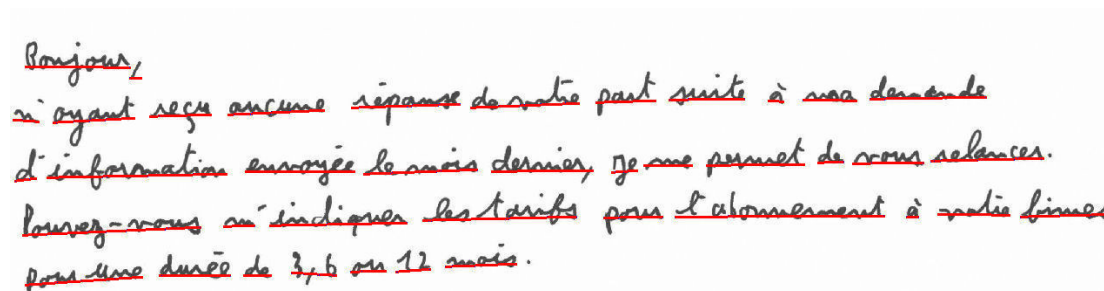 Bonjour,
n'ayant reçu aucune réponse de votre part suite à ma demande
d'information envoyée le mois dernier, je me permet de vous relancer.
Pouvez-vous m'indiquer les tarifs pour l'abonnement à votre bimes
pour une durée de 3, 6 ou 12 mois.